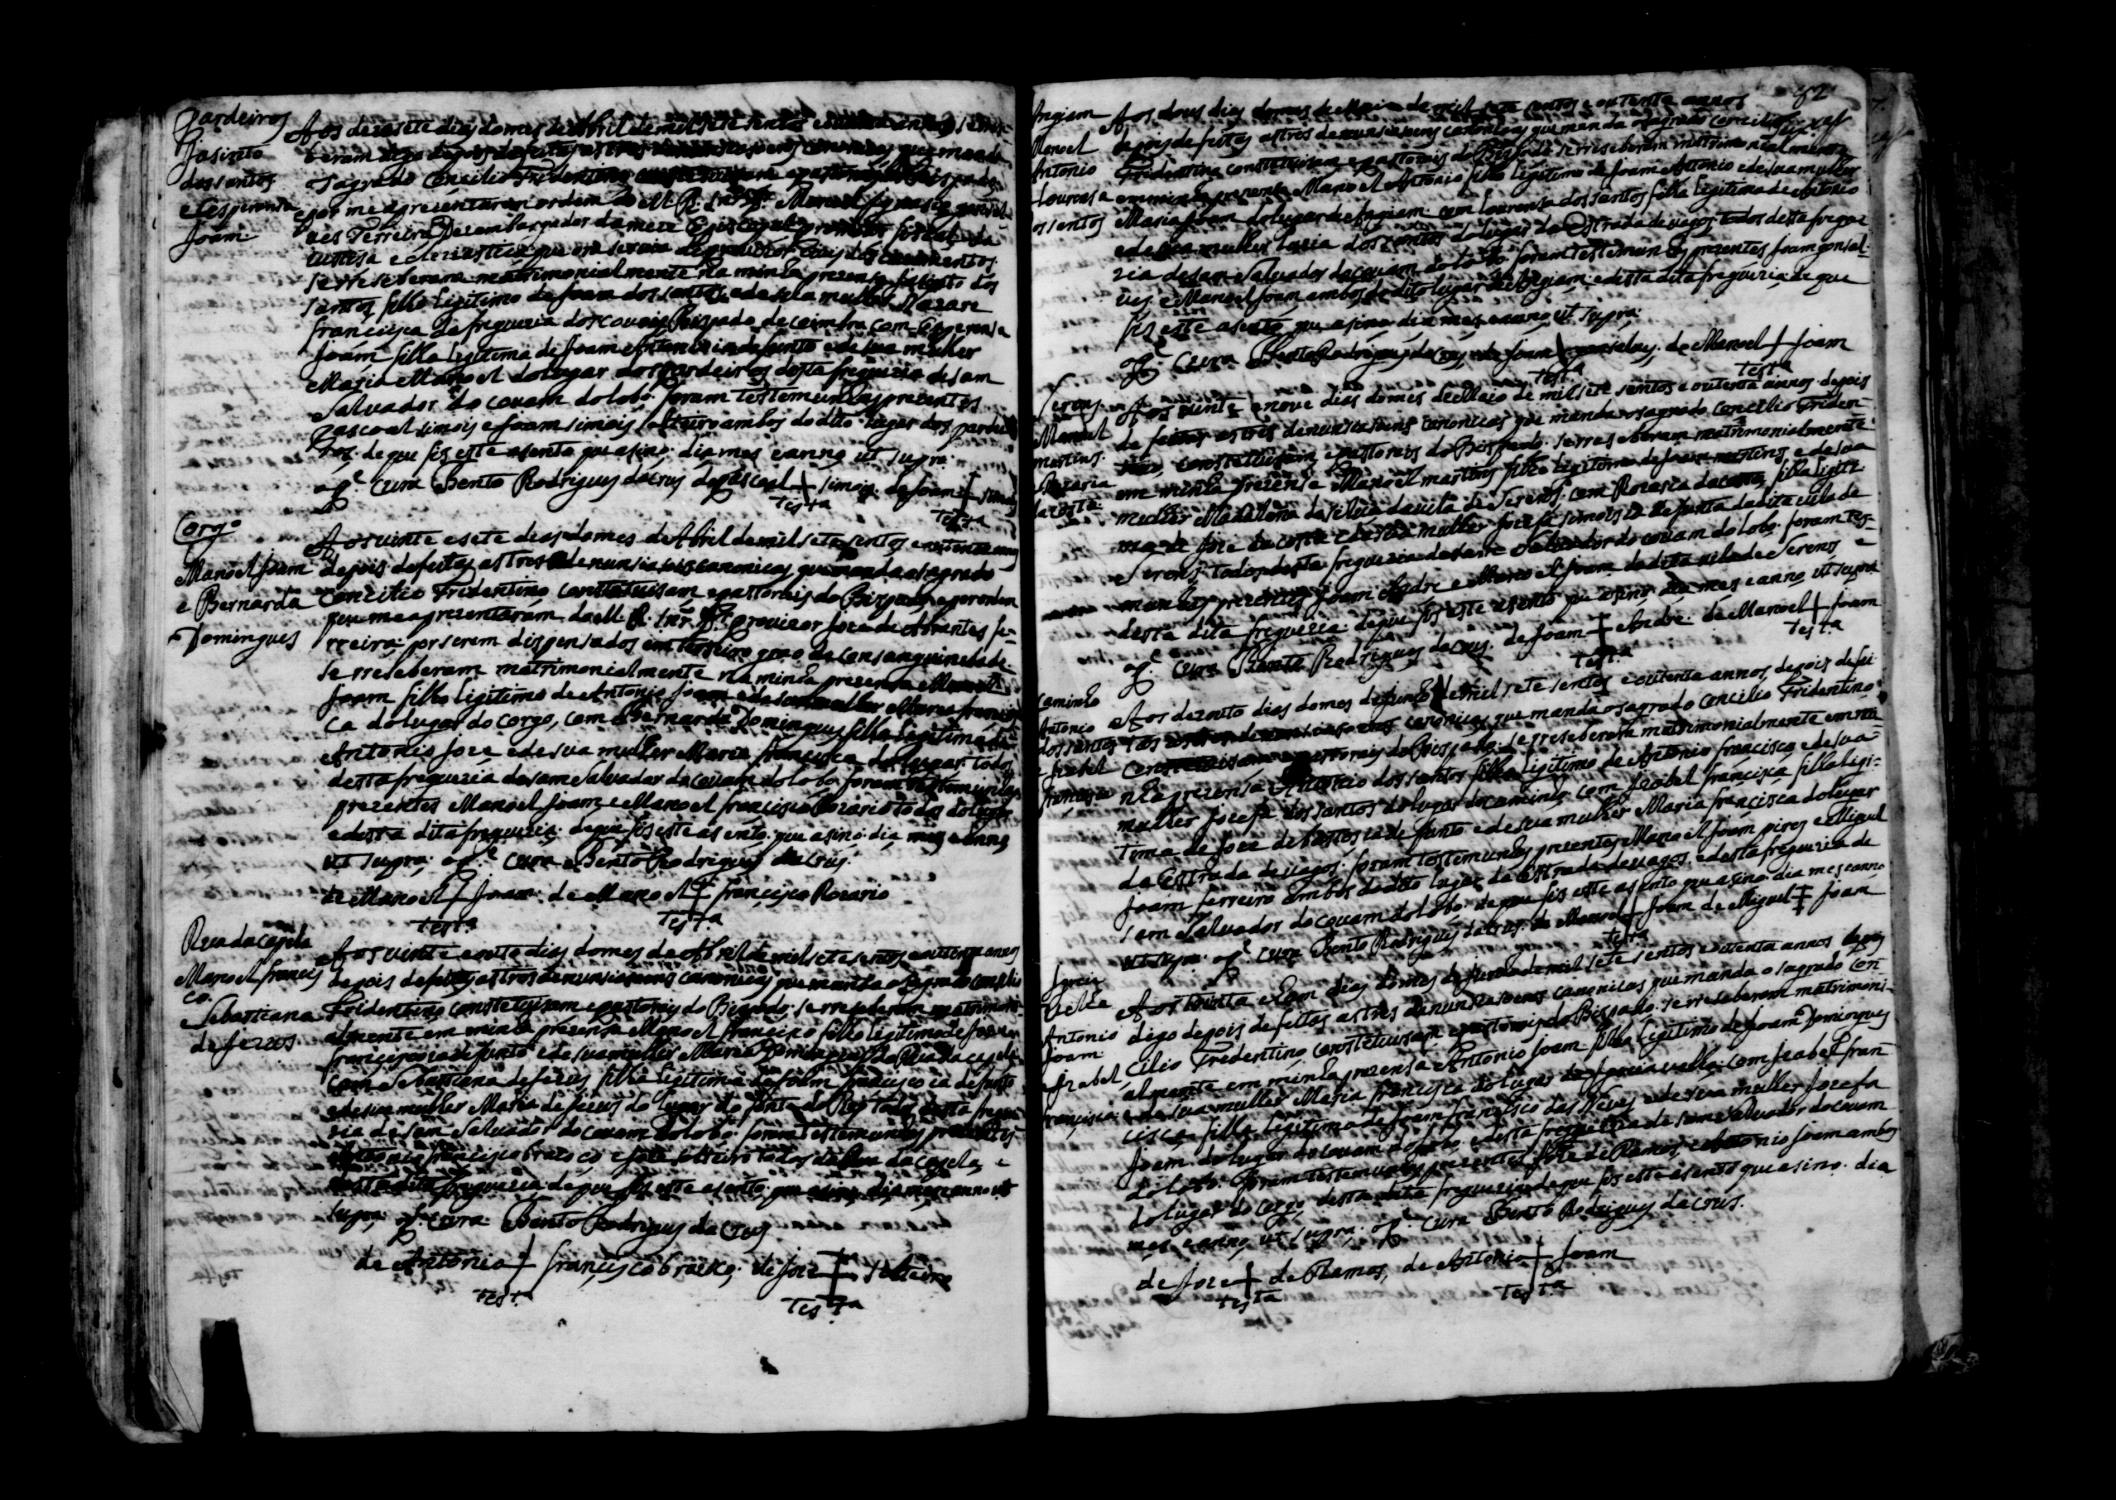 Pardeiros
Jasinto
dos santos
e Esperansa
Joam
Aos dezasete dias do mes de Abril de mil sete sentos e outenta annos se rres-
beram digo depois de feitas as tres denunsiasoens canonicas que manda
o sagrado Concilio Tridentino epastorais do Bispado
e por me aprezentarem ordem do M. R. Snr. Dr. Manoel
ues Ferreira Dezembargador da meza Episcopal promotor fiscal da
Justisa eclesiastica que ora serve de dos Cazamentos.
se rreseberam matrimonialmente na minha prezensa Jasinto dos
santos filho legitimo de Joam dos santos e de sua mulher
francisca da freguezia dos couois Bispado de coimbra com Esperansa
Joam filha legitima de Joam Antonio ia defunto e de sua mulher
Maria Manoel do lugar dos Pardeiros desta freguezia de sam
Salvador do couam do lobo. foram testemunhas prezentes
Pascoal simois e Joam simois solteiro ambos do dito lugar dos pardei-
ros. de que fis este asento que asino. dia mes e anno ut supra.
o Pe. Cura Bento Rodrigues da Crus de Pascoal + simois de Joam + simois
testa testa
Corgo
Manoel Joam
e Bernarda
Domingues
Aos vinte e sete dias do mes de Abril de mil sete sentos e outenta annos
depois de feitas as tres denunsiasois canonicas que manda o sagrado
Concilio Tridentino Constetuisam e pastorais do Bispado e por ordem
que me aprezentaram do M. R. Snr. Dr. Provizor Joze de Abrantes fe-
rreira: por serem dispensados em terseiro grao de consanguinidade.
se rreseberam matrimonialmente na minha prezensa Manoel
Joam filho legitimo de Antonio Joam e de sua mulher Maria francis
ca do lugar do Corgo, com Bernarda Domingues filha legitima de
Antonio Joze e de sua mulher Maria francisca do lugar todos
desta freguezia de sam Salvador do couam do lobo. foram testemunhas
prezentes Manoel Joam e Manoel francisco Rozario todos do lugar
e desta dita freguezia. de que fis este asento. que asino. dia mes e anno
ut supra. o Pe. Cura Bento Rodrigues da Crus.
de Manoel + Joam de Manoel + francisco Rozario
testa testa
Rua da capela
Manoel francis
co.
e Sebastiana
de Jezus.
Aos vinte e outo dias do mes de Abril de mil sete sentos e outenta annos
depois de feitas as tres denunsiasoens canonicas que manda o sagrado concilio
Tridentino Constetuisam e pastorais do Bispado. se rreseberam matrimoni-
almente em minha prezensa Manoel francisco filho legitimo de
francisco ia defunto e de sua mulher Maria Domingues da Rua da capela
com Sebastiana de Jezus filha legitima de Joam francisco ia defunto
e de sua mulher Maria de Jezus do lugar da fonte do Rey todos desta fregue-
zia de sam Salvador do couam do lobo. foram testemunhas prezentes
Antonio francisco e Joze solteiro todos da Rua da capela e
desta dita freguezia de que fis este asento que asino dia mes e anno ut
supra. o Pe. Cura. Bento Rodrigues da Crus
de Antonio + francisco de Joze + solteiro
testa testa
82
Angiam
Manoel
Antonio
Lourensa
dos santos
Aos dous dias do mes de Maio de mil sete sentos e outenta annos
depois de feitas as tres denunsiasoens canonicas que manda o sagrado concilio
Tridentino constetuisam e pastorais do Bispado se rreseberam matrimonialmente
em minha prezensa Manoel Antonio filho legitimo de Joam Antonio e de sua mulher
Maria Joam do lugar de Angiam com Lourensa dos santos filha legitima de Antonio
e de sua mulher Luzia dos santos do lugar da Estrada de uagos todos desta fregue-
zia de sam Salvador do couam do lobo. foram testemunhas prezentes Joam gonsal-
ues e Manoel Joam ambos do dito lugar de Angiam e desta dita freguezia de que
fis este asento que asino dia mes e anno ut supra.
o Pe. Cura Bento Rodrigues da Crus de Joam + gonsalues. de Manoel + Joam
testa testa
Serens.
Manoel
martins
e Rozaria
da costa
Aos uinte e noue dias do mes de Maio de mil sete sentos e outenta annos. depois
de feitas as tres denunsiasoens canonicas que manda o sagrado Concilio Triden-
tino constetuisam e pastorais do Bispado. se rreseberam matrimonialmente
em minha prezensa Manoel martins filho legitimo de Joam martins e de sua
mulher Madalena da silua da uila de Serens com Rozaria da costa filha legiti-
ma de Joze da costa e de sua mulher Jozefa simois ia defunta da dita uila de
Serens todos desta freguezia de sam Saluador do couam do lobo. foram tes-
munhas prezentes Joam Andre e Manoel Joam da dita uila de Serens e
desta dita freguezia. de que fis este asento que asino dia mes e anno ut supra
o Pe. Cura Bento Rodrigues da Crus. de Joam + Andre de Manoel + Joam
testa testa
Caminho
Antonio
dos santos
e Izabel
francisca
Aos dezouto dias do mes de Junho de mil sete sentos e outenta annos, depois de fei-
tas as tres denunsiasoens canonicas que manda o sagrado Concilio Tridentino
Constetuisam e pastorais do Bispado. se rreseberam matrimonialmente em mi-
nha prezensa Antonio dos santos filho legitimo de Antonio francisco e de sua
mulher Jozefa dos santos do lugar do caminho com Izabel francisca filha legi-
tima de Joze de bastos ia defunto e de sua mulher Maria francisca do lugar
da Estrada de uagos. foram testemunhas prezentes Manoel Joam pires e Miguel
Joam ferreiro ambos do dito lugar da Estrada de uagos e desta freguezia de
sam Saluador do couam do lobo. de que fis este asento que asino dia mes e anno
ut supra. o Pe. Cura Bento Rodrigues da Crus. de Manoel + Joam de Miguel + Joam
testa
Antonio
Joam
e Izabel
francisca
Aos trinta e hum dias do mes de Junho de mil sete sentos e outenta annos
digo depois de feitas as tres denunsiasoens canonicas que manda o sagrado Con
cilio Tredentino constetuisam e pastorais do Bispado. se rreseberam matrimoni-
almente em minha prezensa Antonio Joam filho legitimo de Joam Domingues
e de sua mulher Maria francisca do lugar de com Izabel fran
cisca filha legitima de Joam francisco das Neves e de sua mulher Jozefa
Joam do lugar do couam do lobo e desta freguezia de sam Saluador do couam
do lobo. foram testemunhas prezentes Joze de Ramos e Antonio Joam ambos
do lugar do Corgo desta dita freguezia de que fis este asento que asino. dia
mes e anno ut supra. o Pe. Cura Bento Rodrigues da Crus.
de Joze + de Ramos, de Antonio + Joam
testa testa